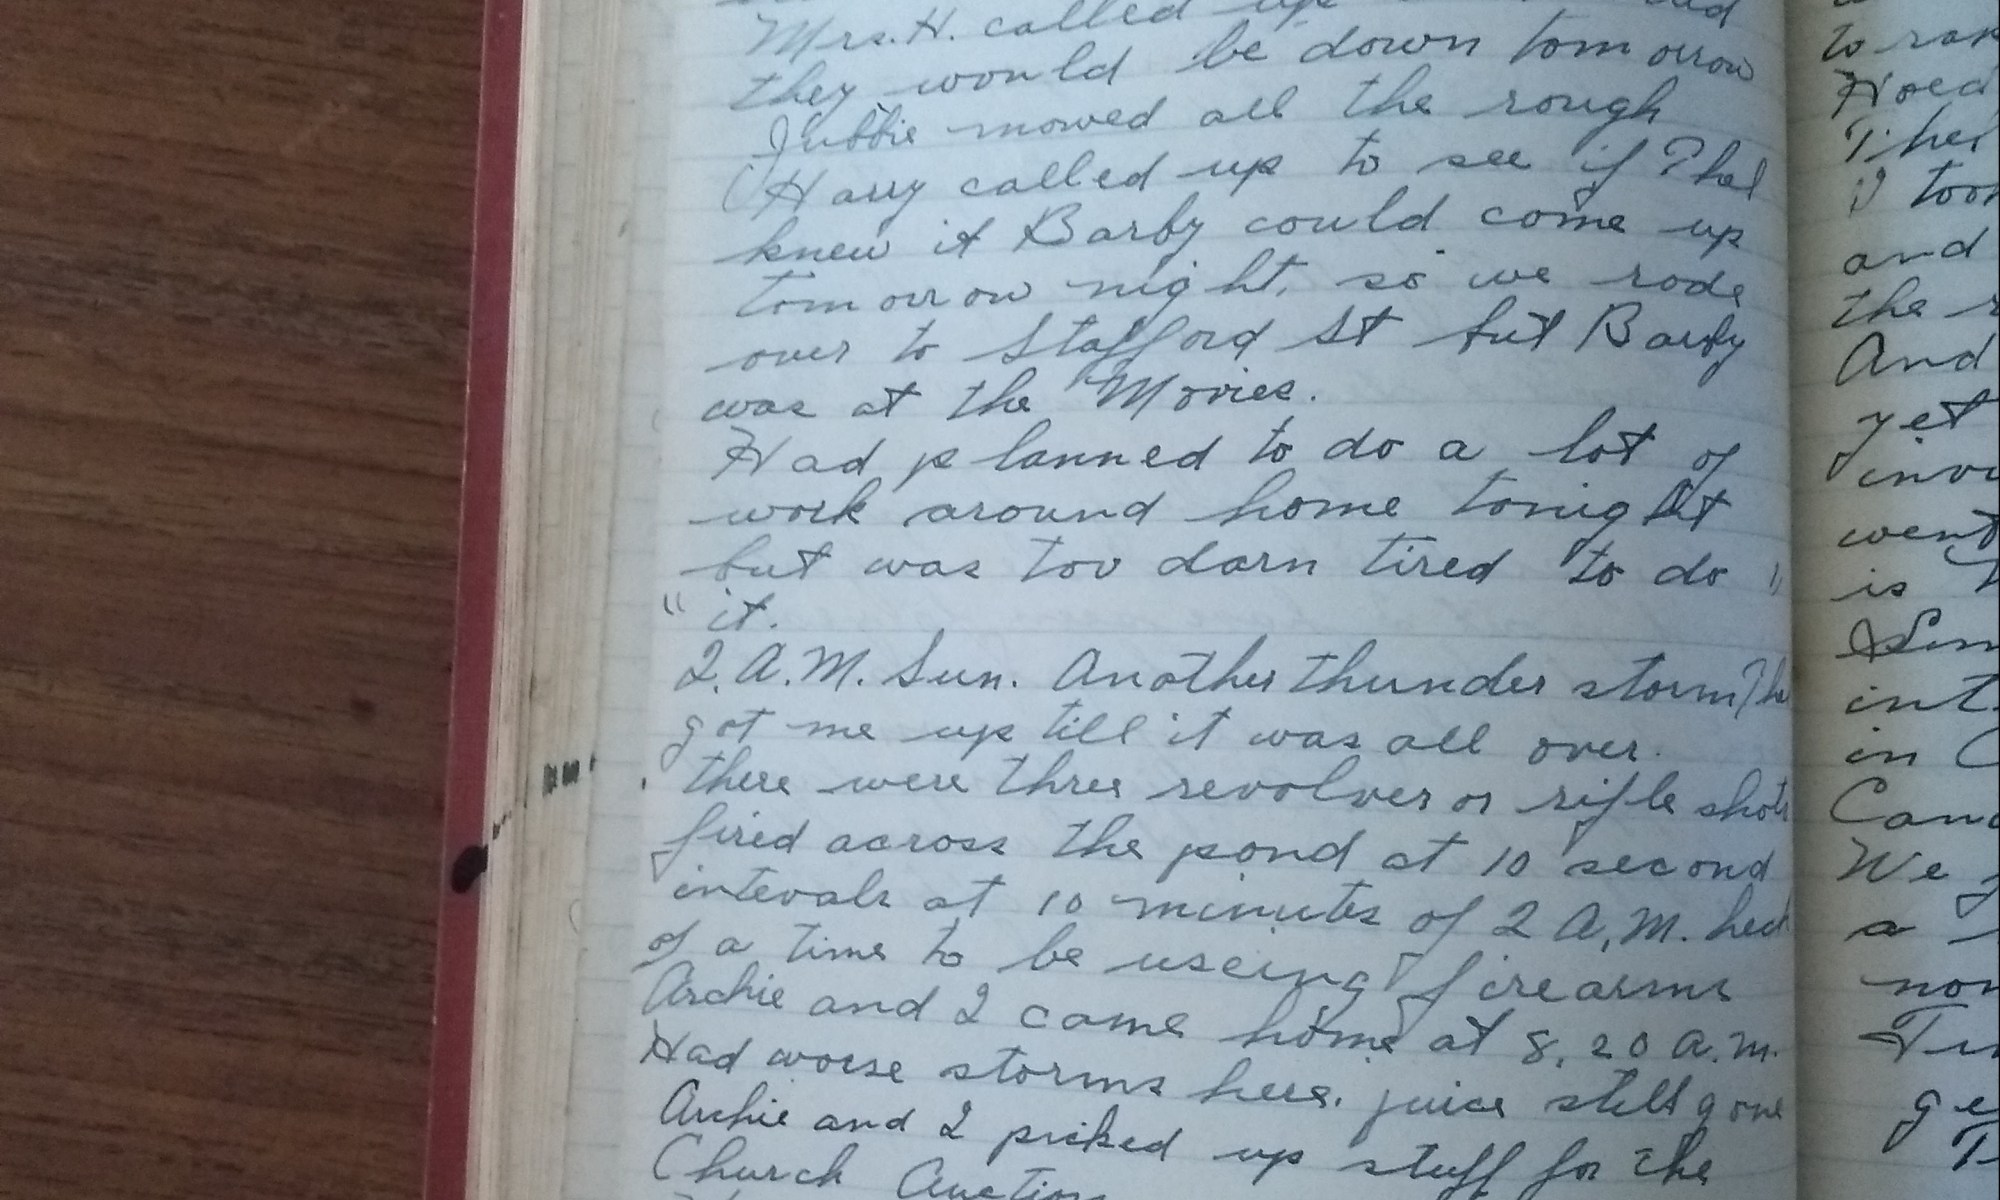 Mrs. H. called up
they would be down tomorrow
Jubbie mowed all the rough
Harry called up to see if Thel
knew if Barby could come up
tomorrow night, so we rode
over to Stafford St but Barby
was at the Movies.
Had planned to do a lot of
work around home tonight
but was too darn tired to do "
" it.
2. A.M. Sun. Another thunder storm
got me up till it was all over.
there were three revolver or rifle shots
fired across the pond at 10 second
intervals at 10 minutes of 2 A.M. heck
of a time to be useing firearms
Archie and I came home at 8,20 a.m.
Had worse storms here. juice still gone
Archie and I picked up stuff for the
Church Auction
to
Hoed
Thel
I took
and
the
And
yet
went
is
int.
in
We
a